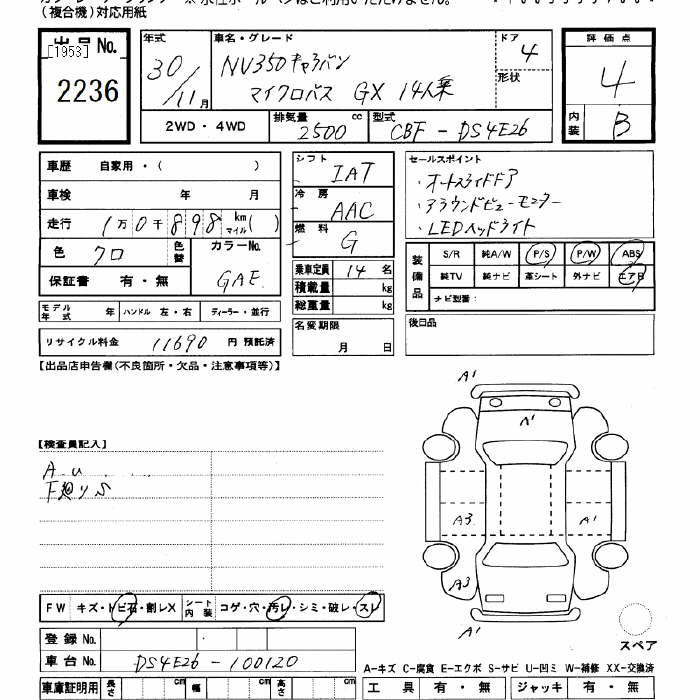 (複合機)対応用紙
出品No.
[1953]
2236
年式
30/11月
車名・グレード
NV350キャラバン
マイクロバス GX 14人乗
ドア
4
形状
評価点
4
内装
B
2WD・4WD
排気量 2500 cc
型式 CBF-DS4E26
車歴 自家用・( )
車検 年 月
走行 1万0千898 km マイル( )
色 クロ 色替
カラーNo. GAE
保証書 有・無
シフト IAT
冷房 AAC
燃料 G
乗車定員 14名
積載量 kg
総重量 kg
セールスポイント
・オートスライドドア
・アラウンドビューモニター
・LEDヘッドライト
装備品
S/R 純A/W P/S P/W ABS
純TV 純ナビ 革シート 外ナビ エアB
ナビ型番:
モデル年式 年 ハンドル 左・右 ディーラー・並行
リサイクル料金 11690 円 預託済
名変期限 月 日
後日品
【出品店申告欄(不良箇所・欠品・注意事項等)】
【検査員記入】
A1
A1
A3
A1
A3
A1
FW キズ・トビ石・割レX
シート内装 コゲ・穴・汚レ・シミ・破レ・スレ
登録No.
車台No. DS4E26-100120
スペア
A-キズ C-腐食 E-エクボ S-サビ U-凹ミ W-補修 XX-交換済
車庫証明用 長さ cm 幅 cm 高さ cm
工具 有・無 ジャッキ 有・無